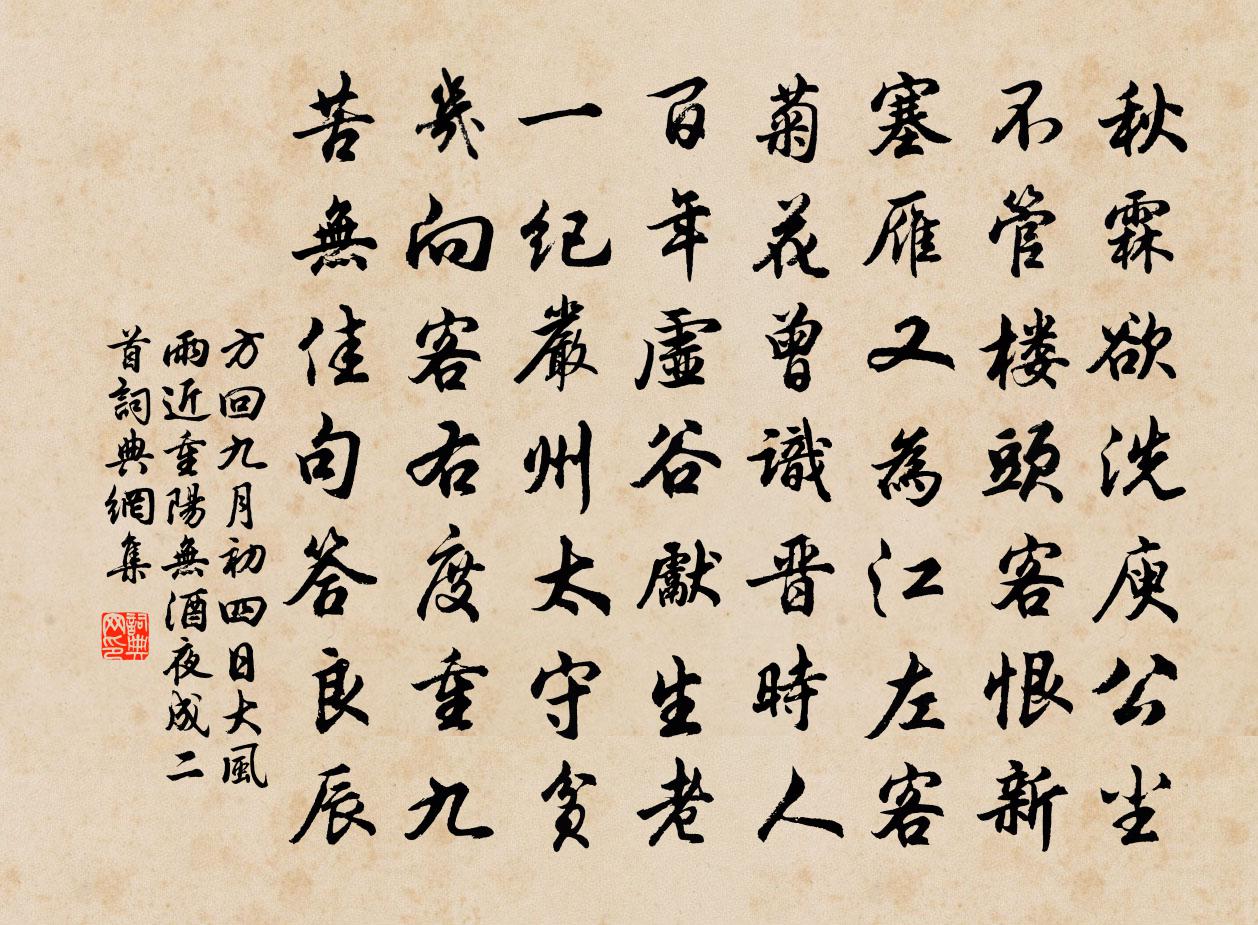 秋霖欲洗庾公尘
不管楼頭客恨新
塞雁又為江左客
菊花曾識晋時人
百年虛谷獻生老
一纪嚴州太守贫
幾向客右度重九
苦無佳句答良辰
方回九月初四日大風
雨近重陽無酒夜成二
首詞典網集
詞典网印